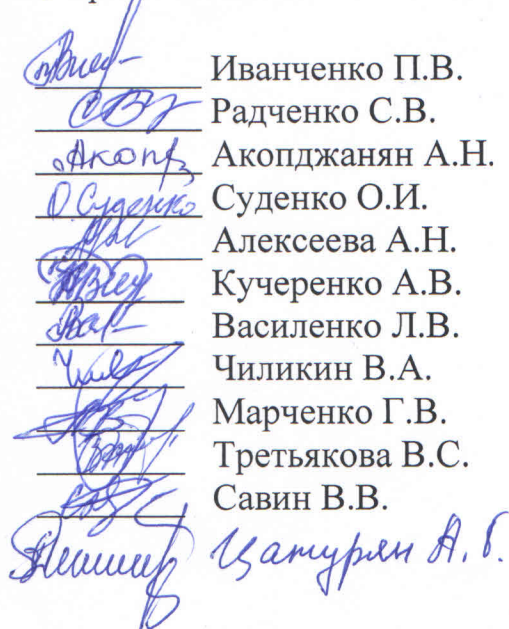 Иванченко П.В.
Радченко С.В.
Акопджанян А.Н.
О Суденко Суденко О.И.
Алексеева А.Н.
Кучеренко А.В.
Василенко Л.В.
Чиликин В.А.
Марченко Г.В.
Третьякова В.С.
Савин В.В.
Цатурян А.Б.